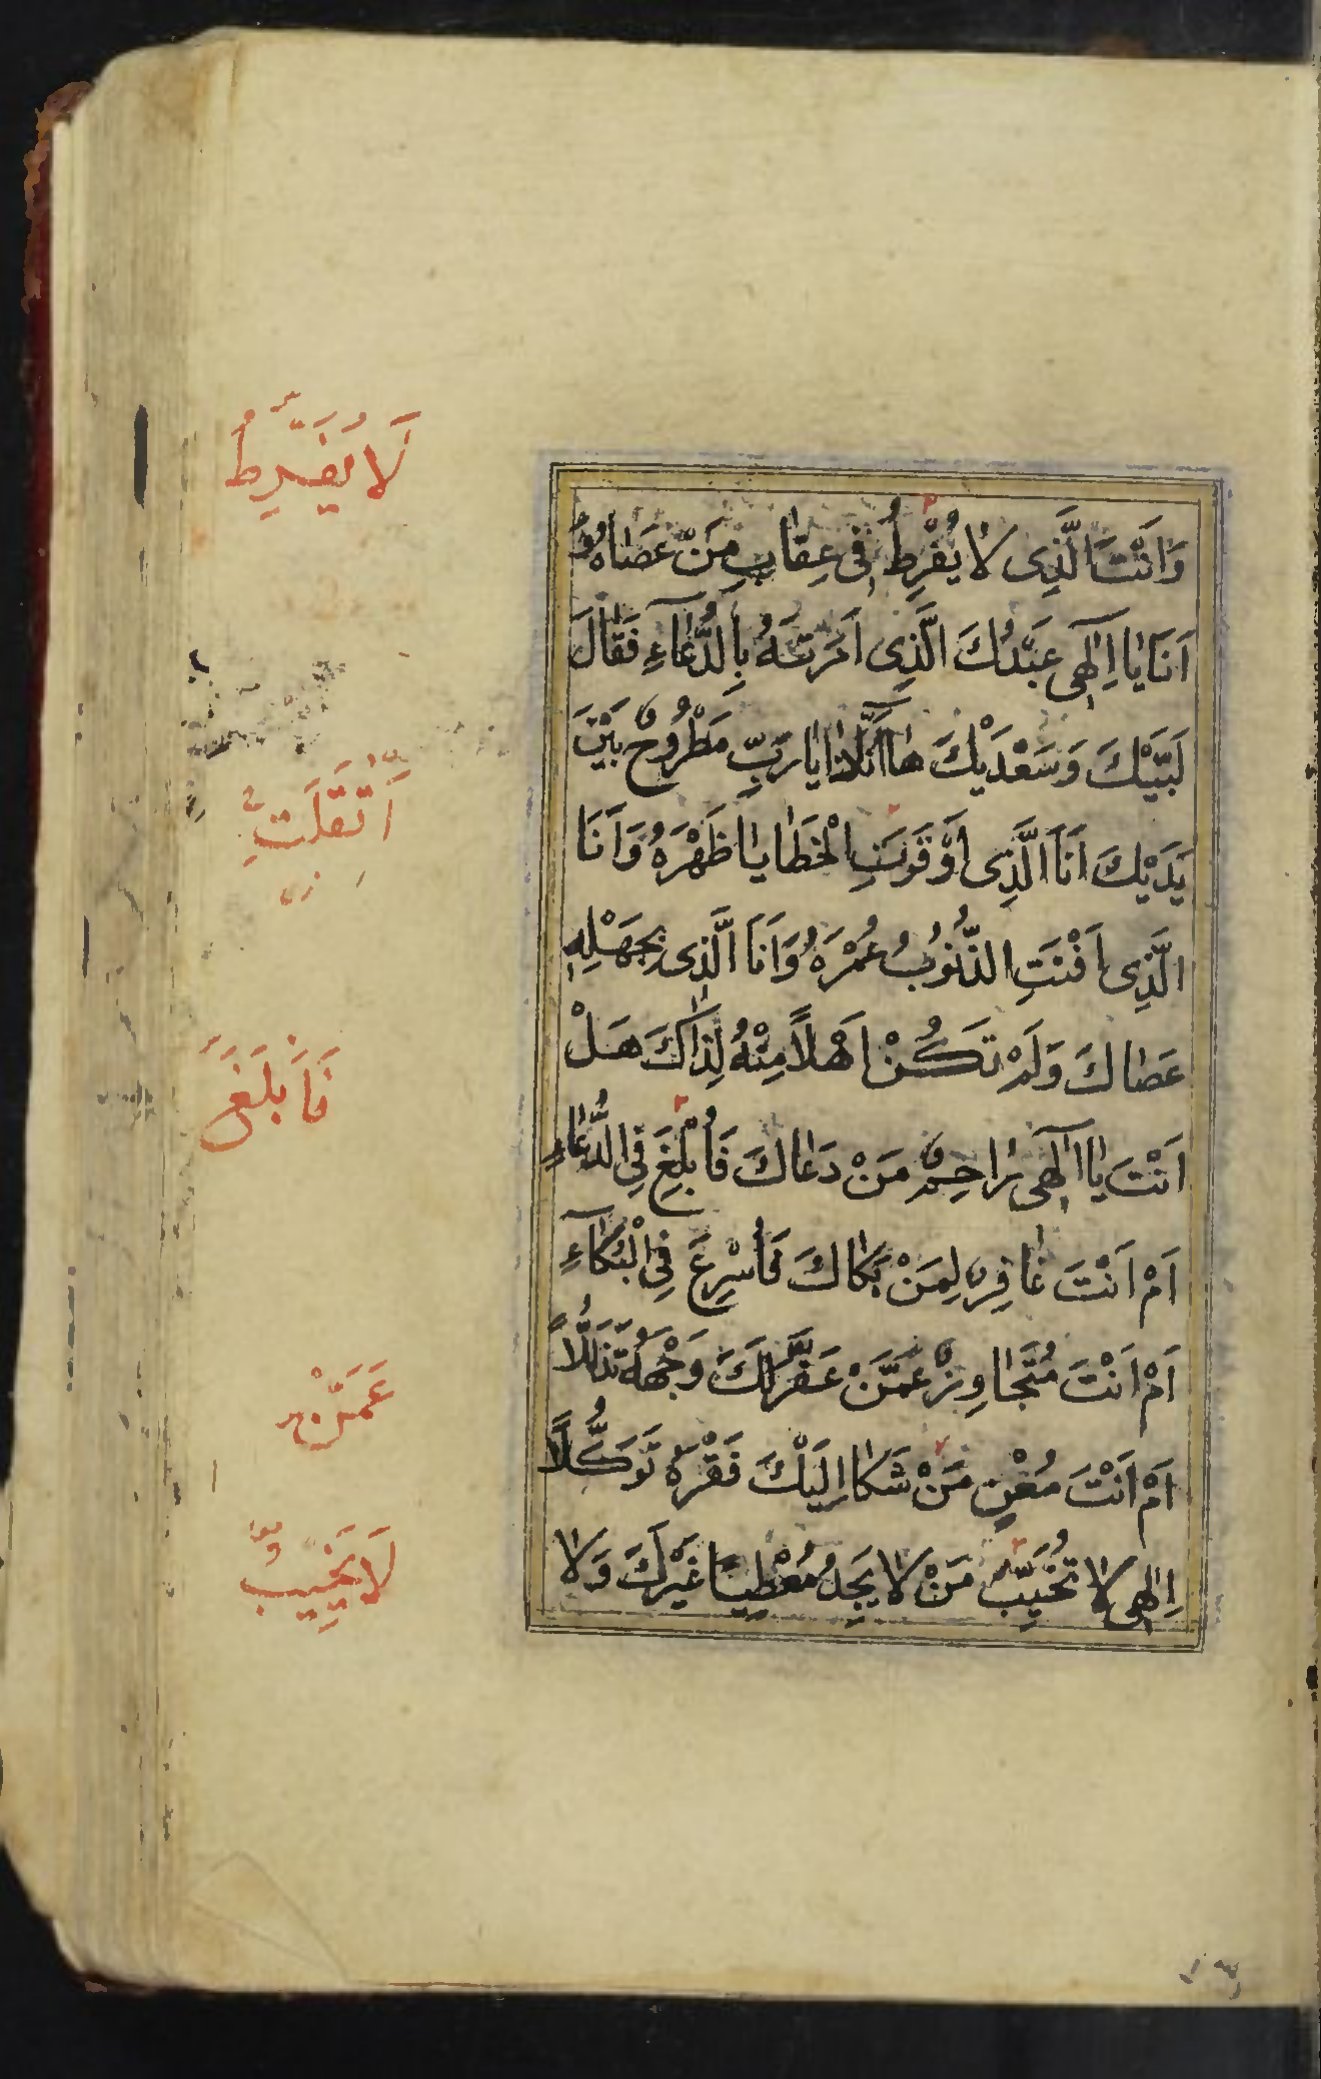 وَاَنْتَ الَّذِى لَا يُفْرِطُ فِى عِقَابِ مَنْ عَصَاهُ وَ
اَنَا يَا اِلٰهِى عَبْدُكَ الَّذِى اَمَرْتَهُ بِالدُّعَآءِ فَقَالَ
لَبَّيْكَ وَسَعْدَيْكَ هَا اَنَا ذَا يَا رَبِّ مَطْرُوحٌ بَيْنَ
يَدَيْكَ اَنَا الَّذِى اَوْقَرَتِ الْخَطَايَا ظَهْرَهُ وَاَنَا
الَّذِى اَفْنَتِ الذُّنُوبُ عُمْرَهُ وَاَنَا الَّذِى بِجَهْلِهِ
عَصَاكَ وَلَمْ تَكُنْ اَهْلًا مِنْهُ لِذَاكَ هَلْ
اَنْتَ يَا اِلٰهِى رَاحِمٌ مَنْ دَعَاكَ فَاُبْلِغَ فِى الدُّعَاءِ
اَمْ اَنْتَ غَافِرٌ لِمَنْ بَكَاكَ فَاُسْرِعَ فِى الْبُكَآءِ
اَمْ اَنْتَ مُتَجَاوِزٌ عَمَّنْ عَفَّرَ لَكَ وَجْهَهُ تَذَلُّلًا
اَمْ اَنْتَ مُغْنٍ مَنْ شَكَا اِلَيْكَ فَقْرَهُ تَوَكُّلًا
اِلٰهِى لَا تُخَيِّبْ مَنْ لَا يَجِدُ مُعْطِيًا غَيْرَكَ وَلَا
لَا يُفَرِّطُ
فَاَبْلَغَ
عَمَّنْ
لَا يُخَيِّبُ